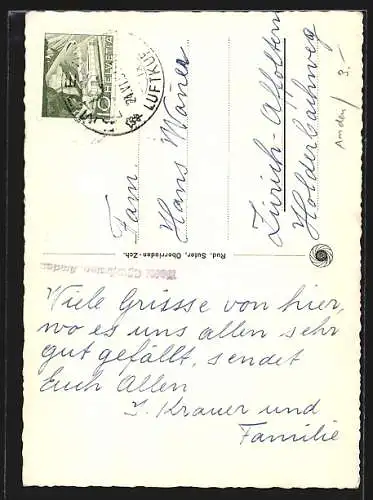 Fam.
Hans Maurer
Zürich-Affoltern
Holderbachweg
Amden
3.-
HELVETIA
10
24.VI.5
LUFTKUR
Rud. Suter, Oberrieden-Zch.
Viele Grüsse von hier,
wo es uns allen sehr
gut gefällt, sendet
Euch Allen
J. Krauer und
Familie